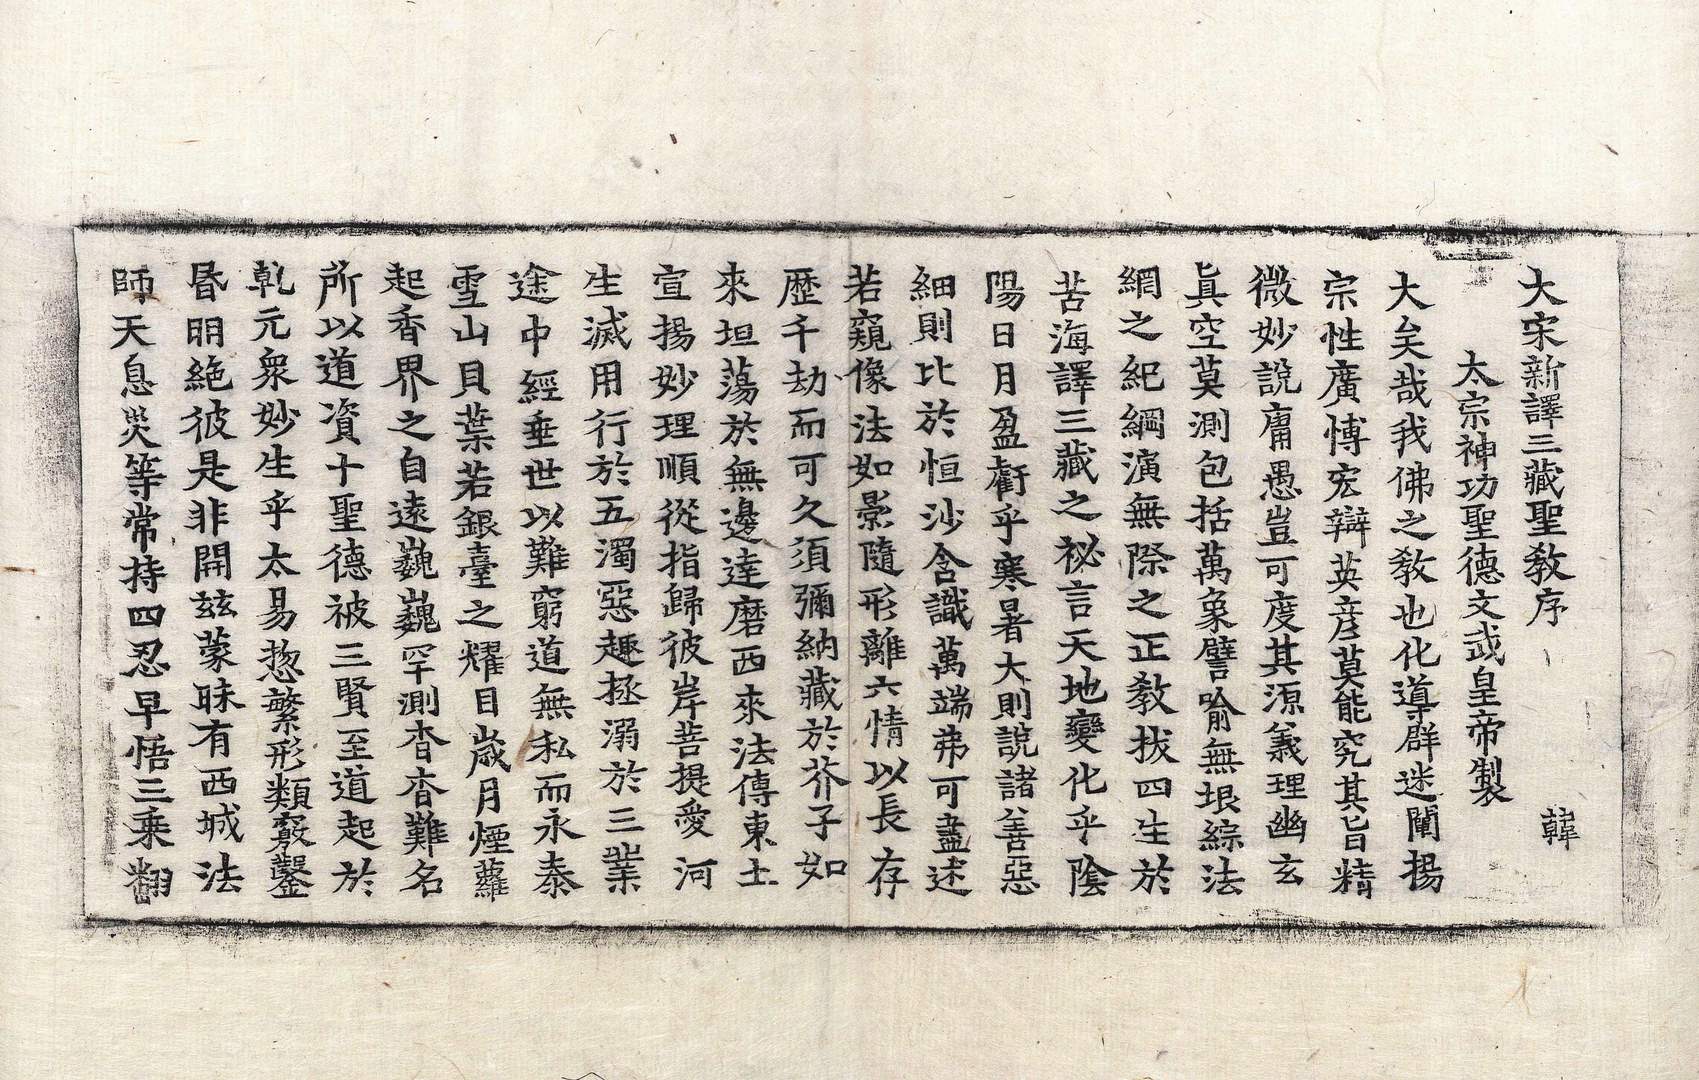 大宋新譯三藏聖教序　韓
太宗神功聖德文武皇帝製
大矣哉我佛之教也化導群迷闡揚
宗性廣博宏辯英彦莫能究其旨精
微妙說庸愚豈可度其源義理幽玄
眞空莫測包括萬象譬喻無垠綜法
網之紀綱演無際之正教拔四生於
苦海譯三藏之祕言天地變化乎陰
陽日月盈虧乎寒暑大則說諸善惡
細則比於恒沙含識萬端弗可盡述
若窺像法如影隨形離六情以長存
歷千劫而可久須彌納藏於芥子如
來坦蕩於無邊達磨西來法傳東土
宣揚妙理順從指歸彼岸菩提愛河
生滅用行於五濁惡趣拯溺於三業
途中經垂世以難窮道無私而永泰
雪山貝葉若銀臺之耀目歲月煙蘿
起香界之自遠巍巍罕測杳杳難名
所以道資十聖德被三賢至道起於
乾元衆妙生乎太易惣繁形類竅鑿
昬明絶彼是非開兹蒙昧有西域法
師天息災等常持四忍早悟三乘翻